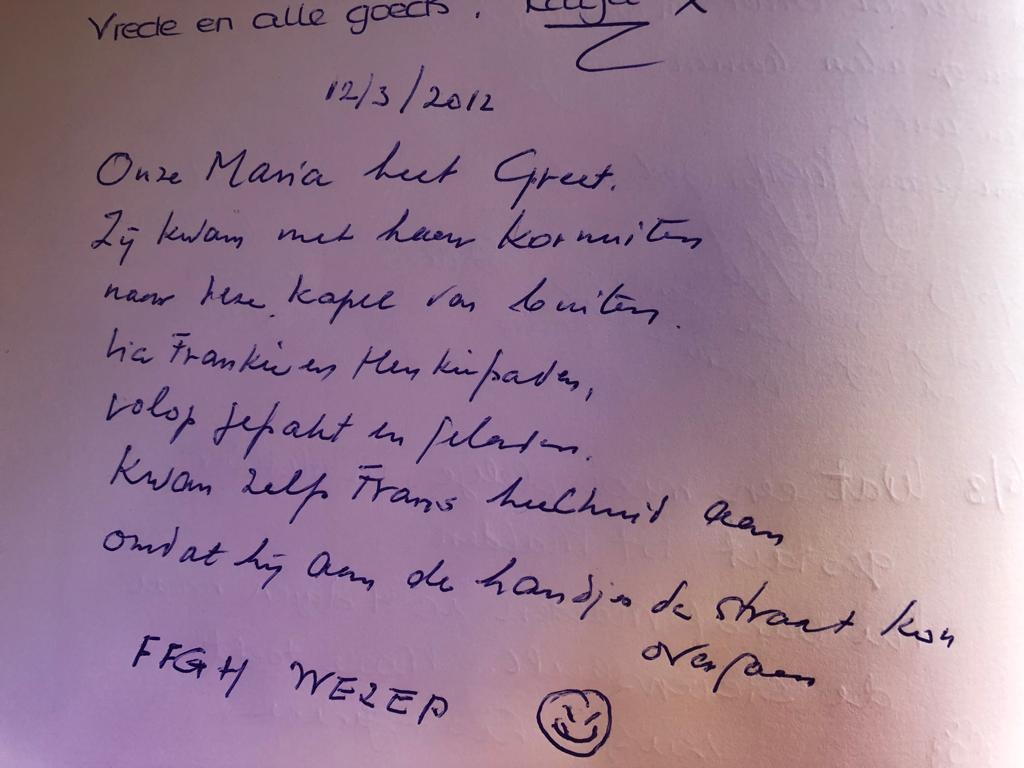 Vrede en alle goeds. Katja X
12/3/2012
Onze Maria heet Greet.
Zij kwam met haar kornuiten
naar deze kapel van buiten.
Via Frankie en Henkiepaden,
volop gepakt en geladen.
Kwam zelfs Frans heelhuid aan
omdat hij aan de handjes de straat kon
overgaan
FFGH WEZEP